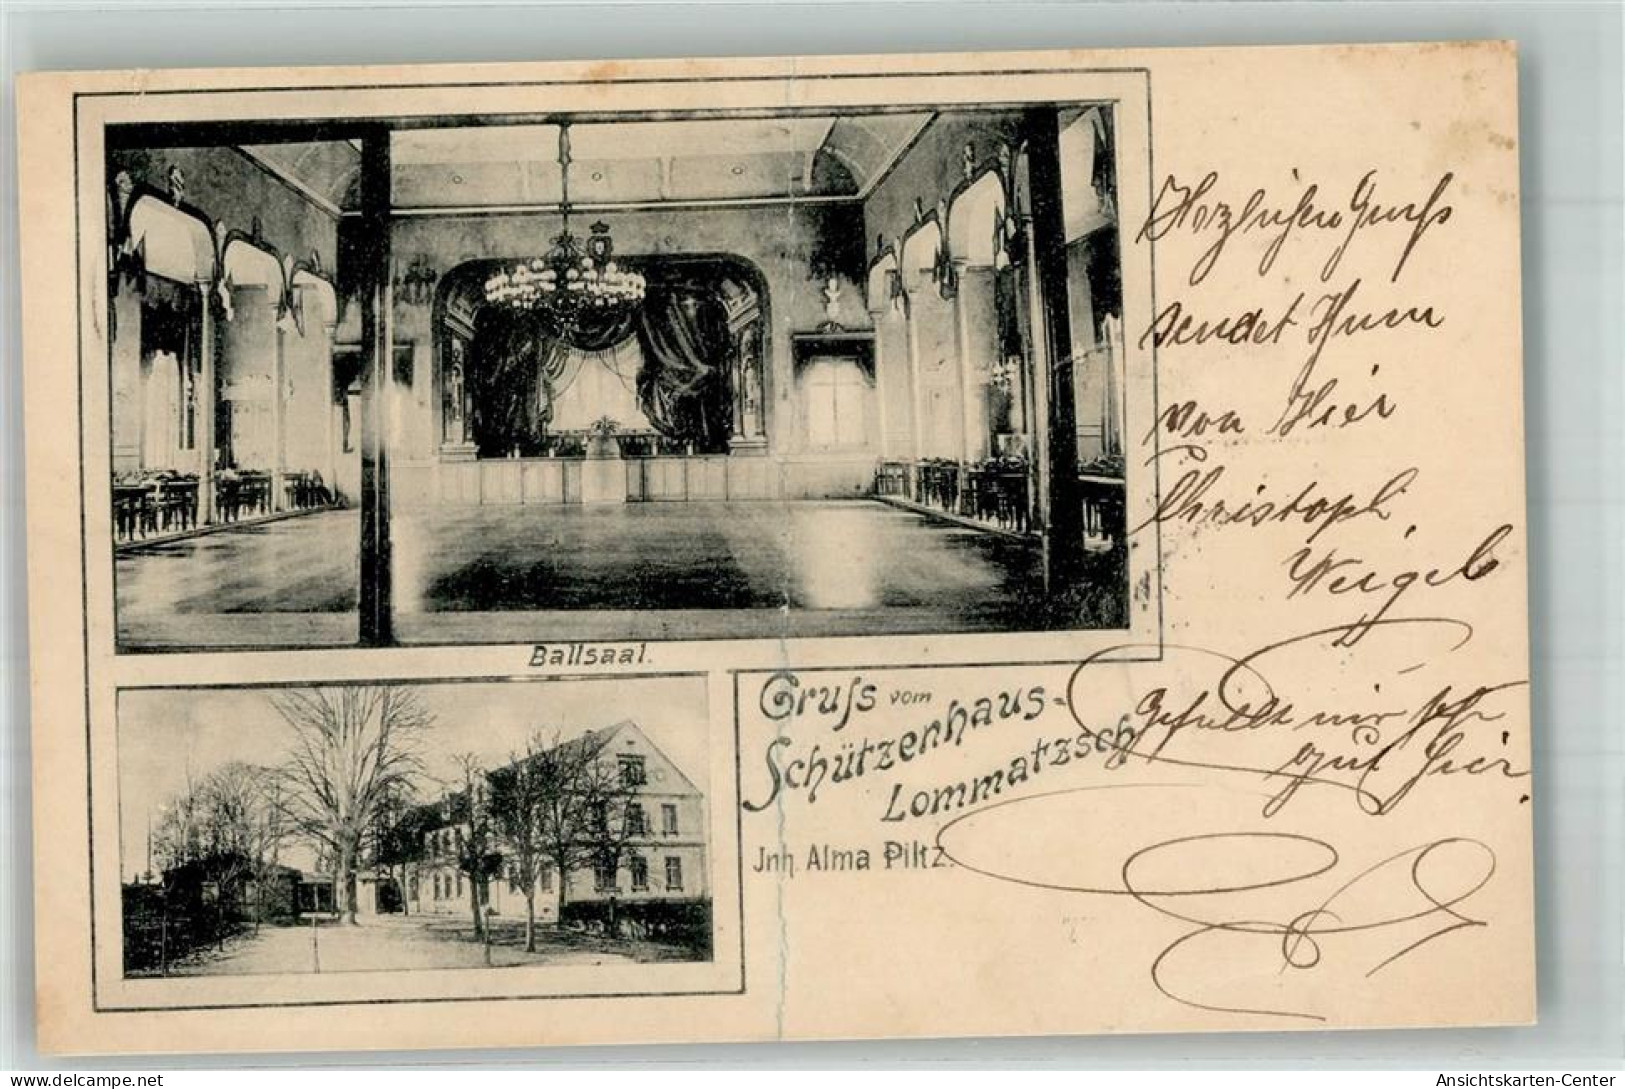 Ballsaal.
Gruſs vom
Schützenhaus-
Lommatzsch
Jnh. Alma Piltz.
Herzlichen Gruß
sendet Ihnen
von Hier
Christoph
Weigel
Gefällt mir sehr
gut hier.
Ansichtskarten-Center